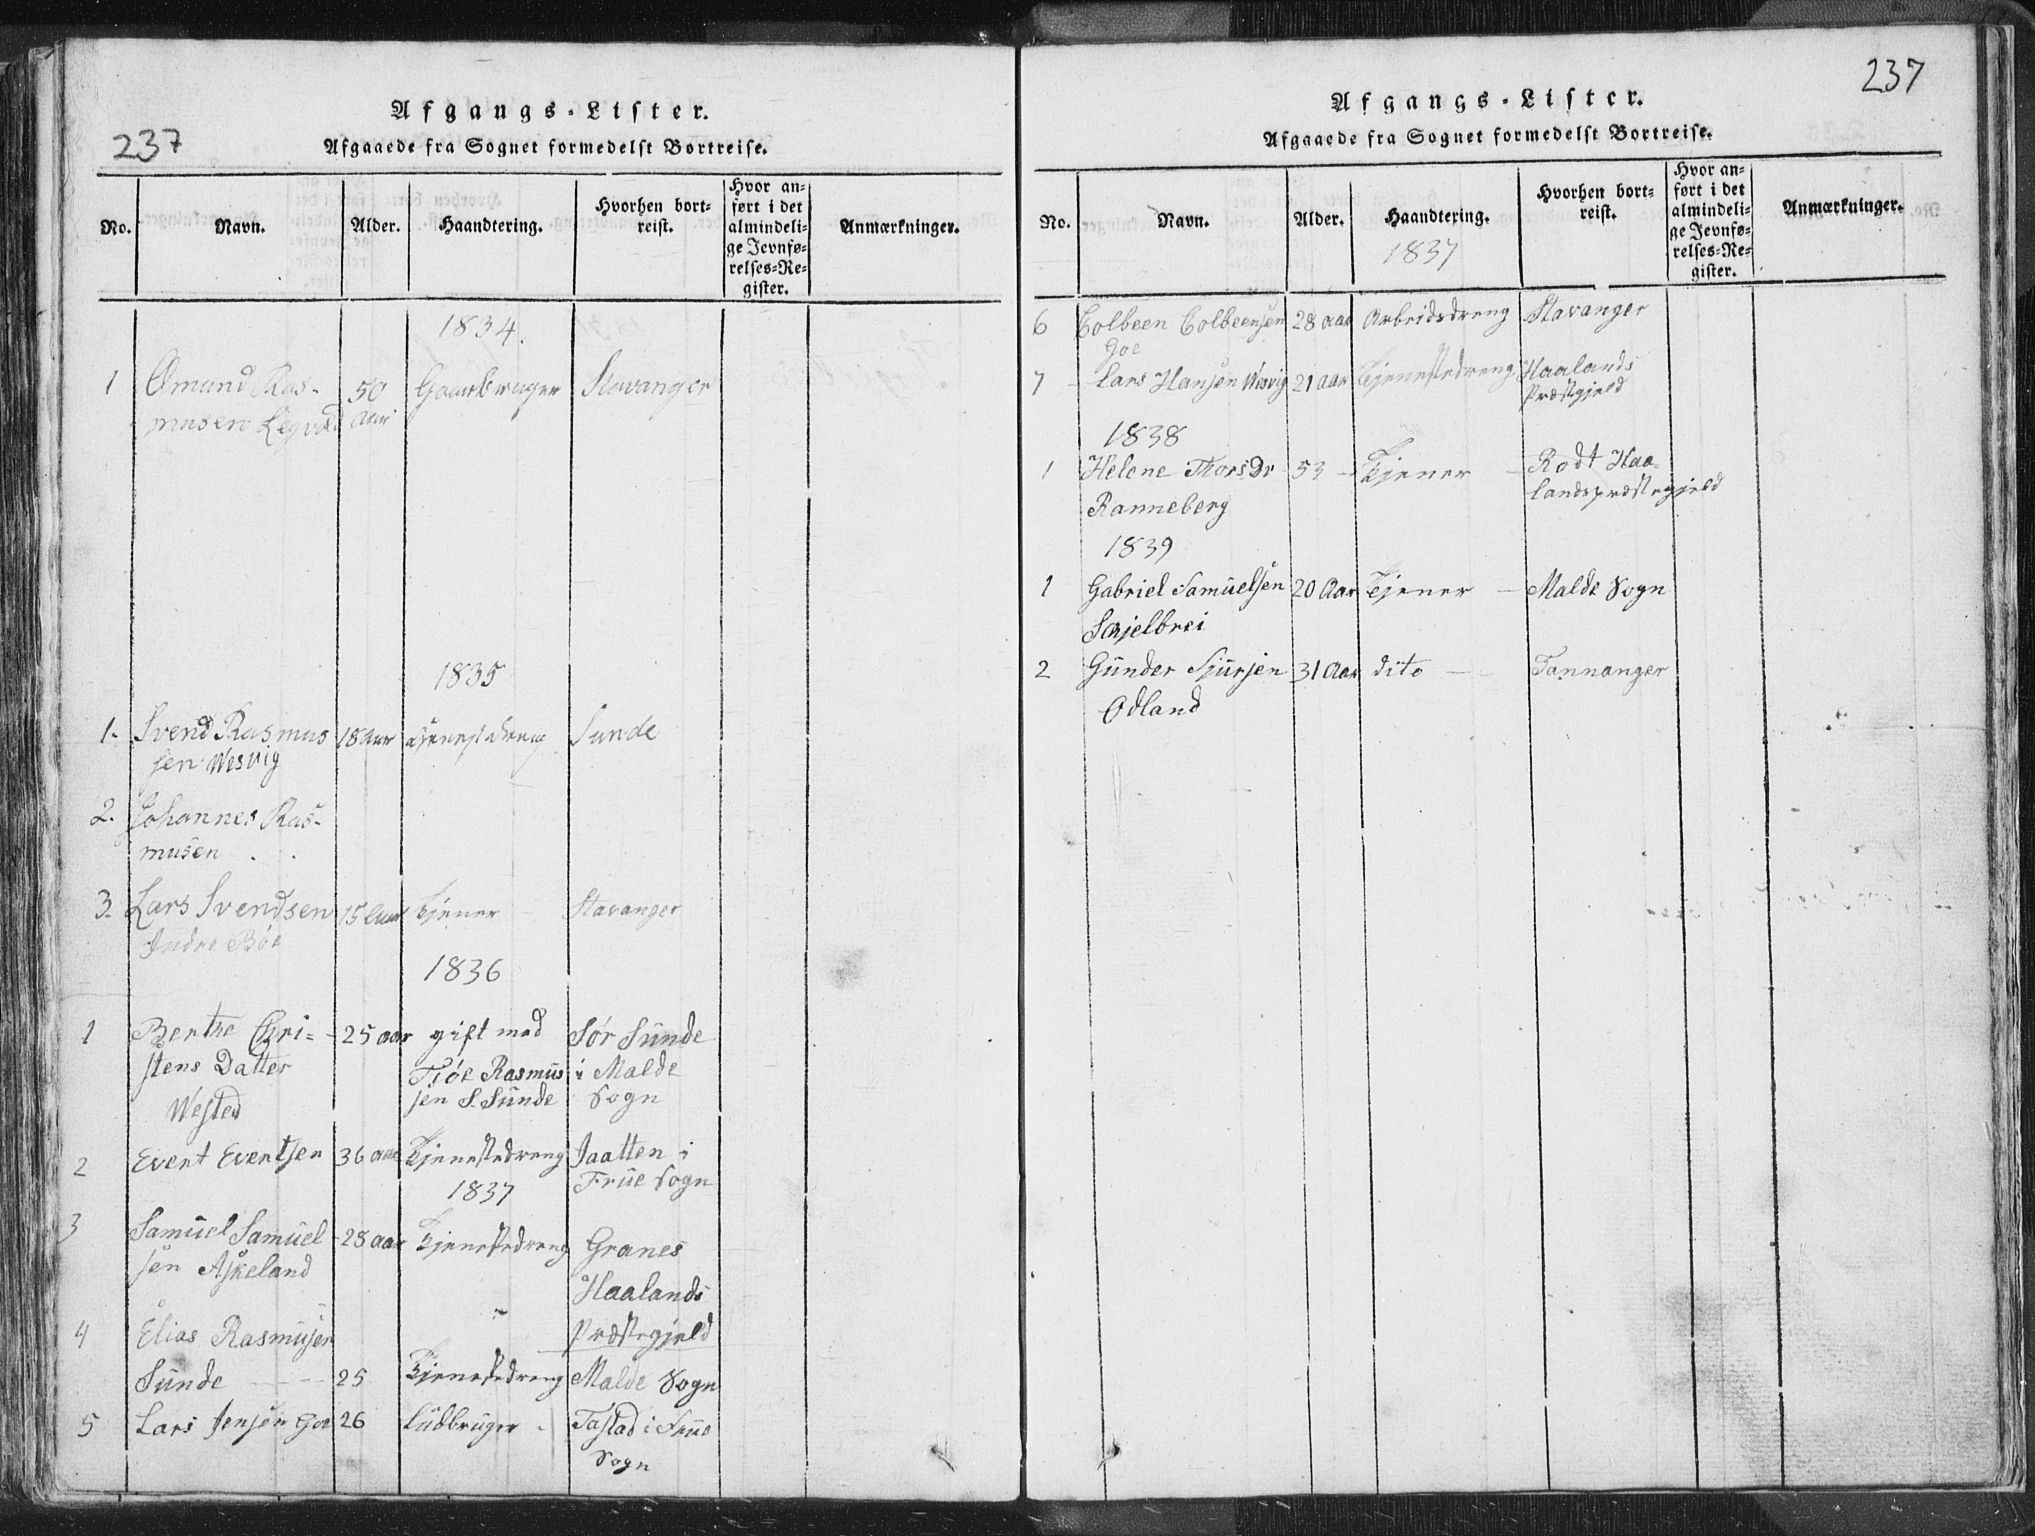 Afgangs-Lister.
237
Afgaaede fra Sognet formedelst Bortreise.
No. Navn. Alder. Haandtering. Hvorhen bortreist. Hvor anført i det almindelige Jevnførelses-Register. Anmærkninger.
1834.
1 Omund Ras- 50 Gaarbruger Stavanger
musen Aar
1835
1. Svend Rasmus 18 Aar Sunde
sen Wesvig
2. Johannes Ras-
musen
3. Lars Svendsen 15 Aar Tjener Stavanger
Indre Bøe
1836
1 Berthe Chri= 25 aar gift med Sør Sunde
stens Datter Tjøe Rasmus i Malde
Wested sen S. Sunde Sogn
2 Evert Evertsen 36 aar Tjenestedreng Jaatten i
1837 Frue Sogn
3 Samuel Samuel 28 aar Tjenestedreng Granes
sen Askeland Haalands
4 Elias Rasmusen Præstegjeld
Sunde 25 Tjenestedreng Malde Sogn
5 Lars Jensen Goe 26 Ludbruger Tastad i Frue
Sogn
237
Afgangs-Lister.
Afgaaede fra Sognet formedelst Bortreise.
No. Navn. Alder. Haandtering. Hvorhen bortreist. Hvor anført i det almindelige Jevnførelses-Register. Anmærkninger.
1837
6 Colbeen Colbeensen 28 aar Arbeidsdreng Stavanger
Goe
7 Lars Hansen Wesvig 21 aar Tjenestedreng Haalands
Præstgjeld
1838
1 Helene Thorsdr 53 Tjener Rodt Haa-
Ranneberg landspræstegjeld
1839
1 Gabriel Samuelsen 20 Aar Tjener Malde Sogn
Skjelbrei
2 Gunder Sjursen 31 Aar dito Tannanger
Odland